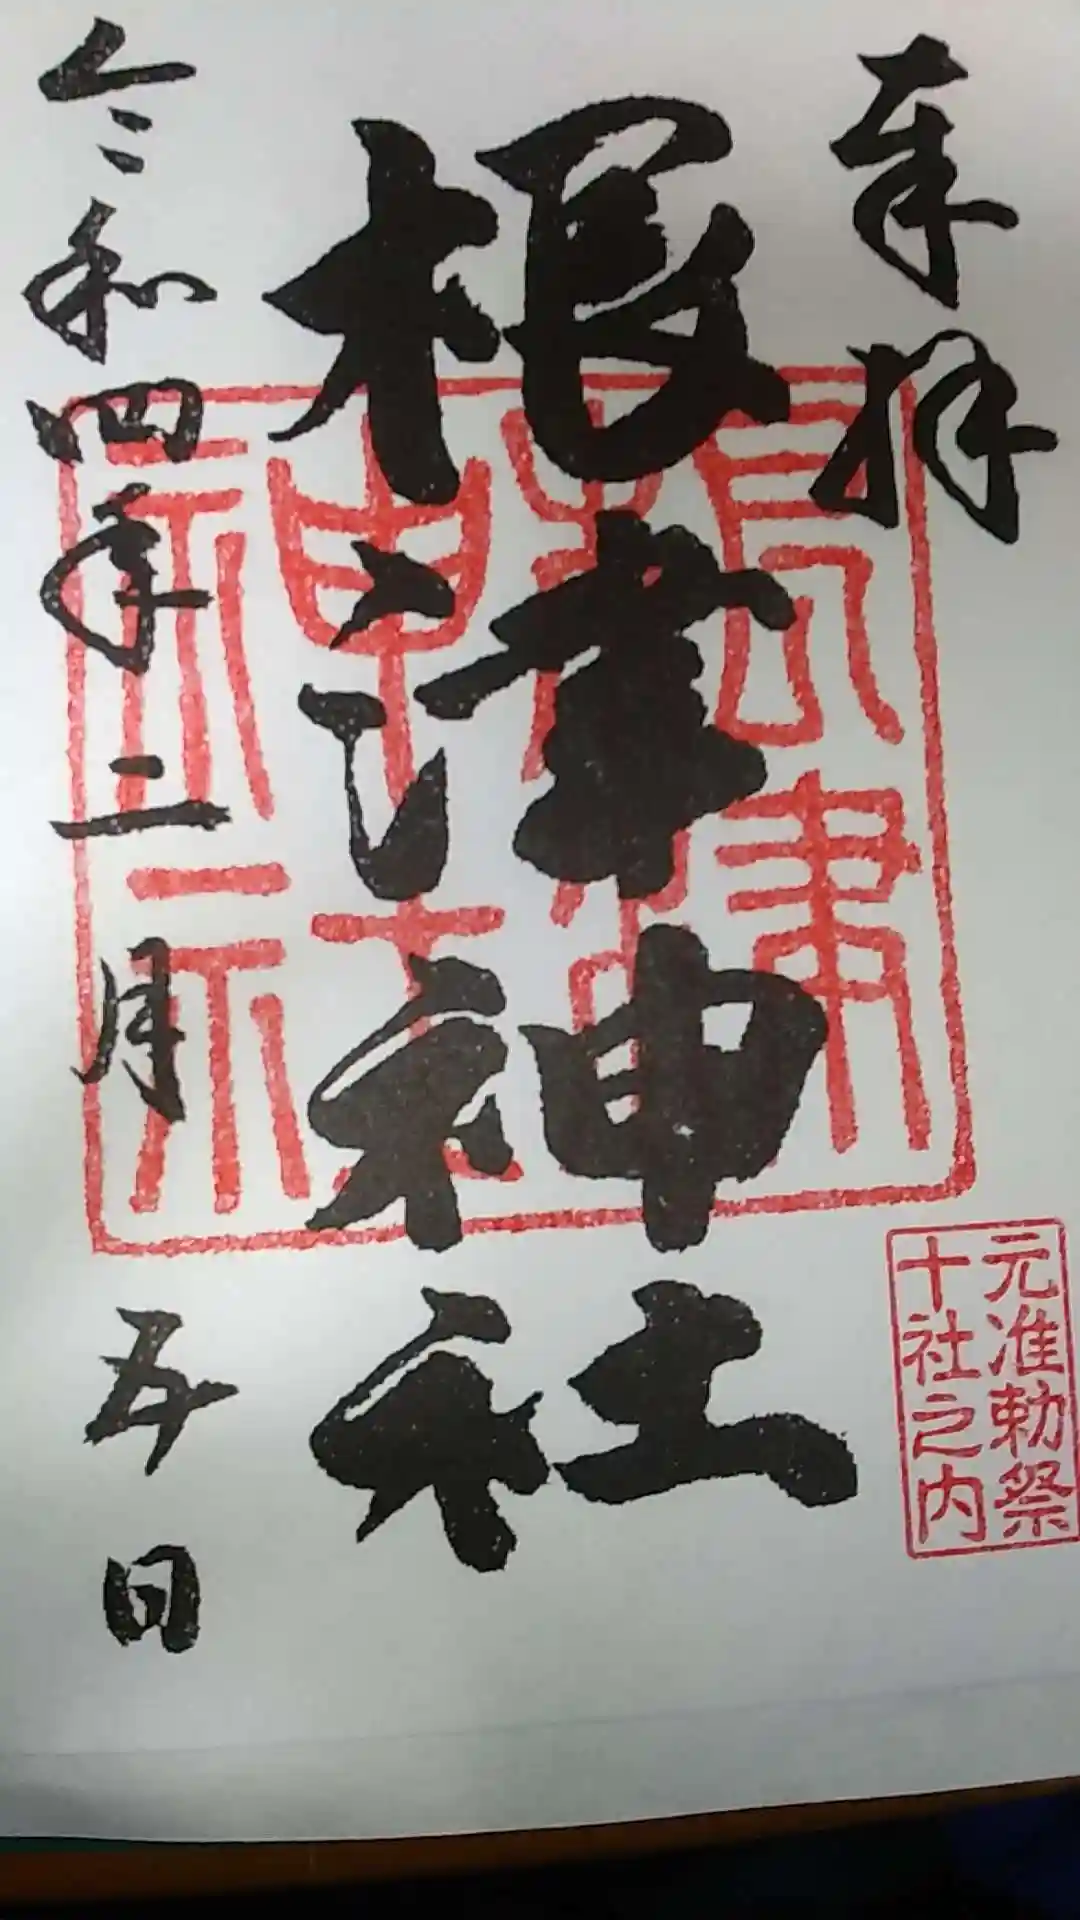 奉拝
元准勅祭
十社之内
根津神社
令和四年二月五日